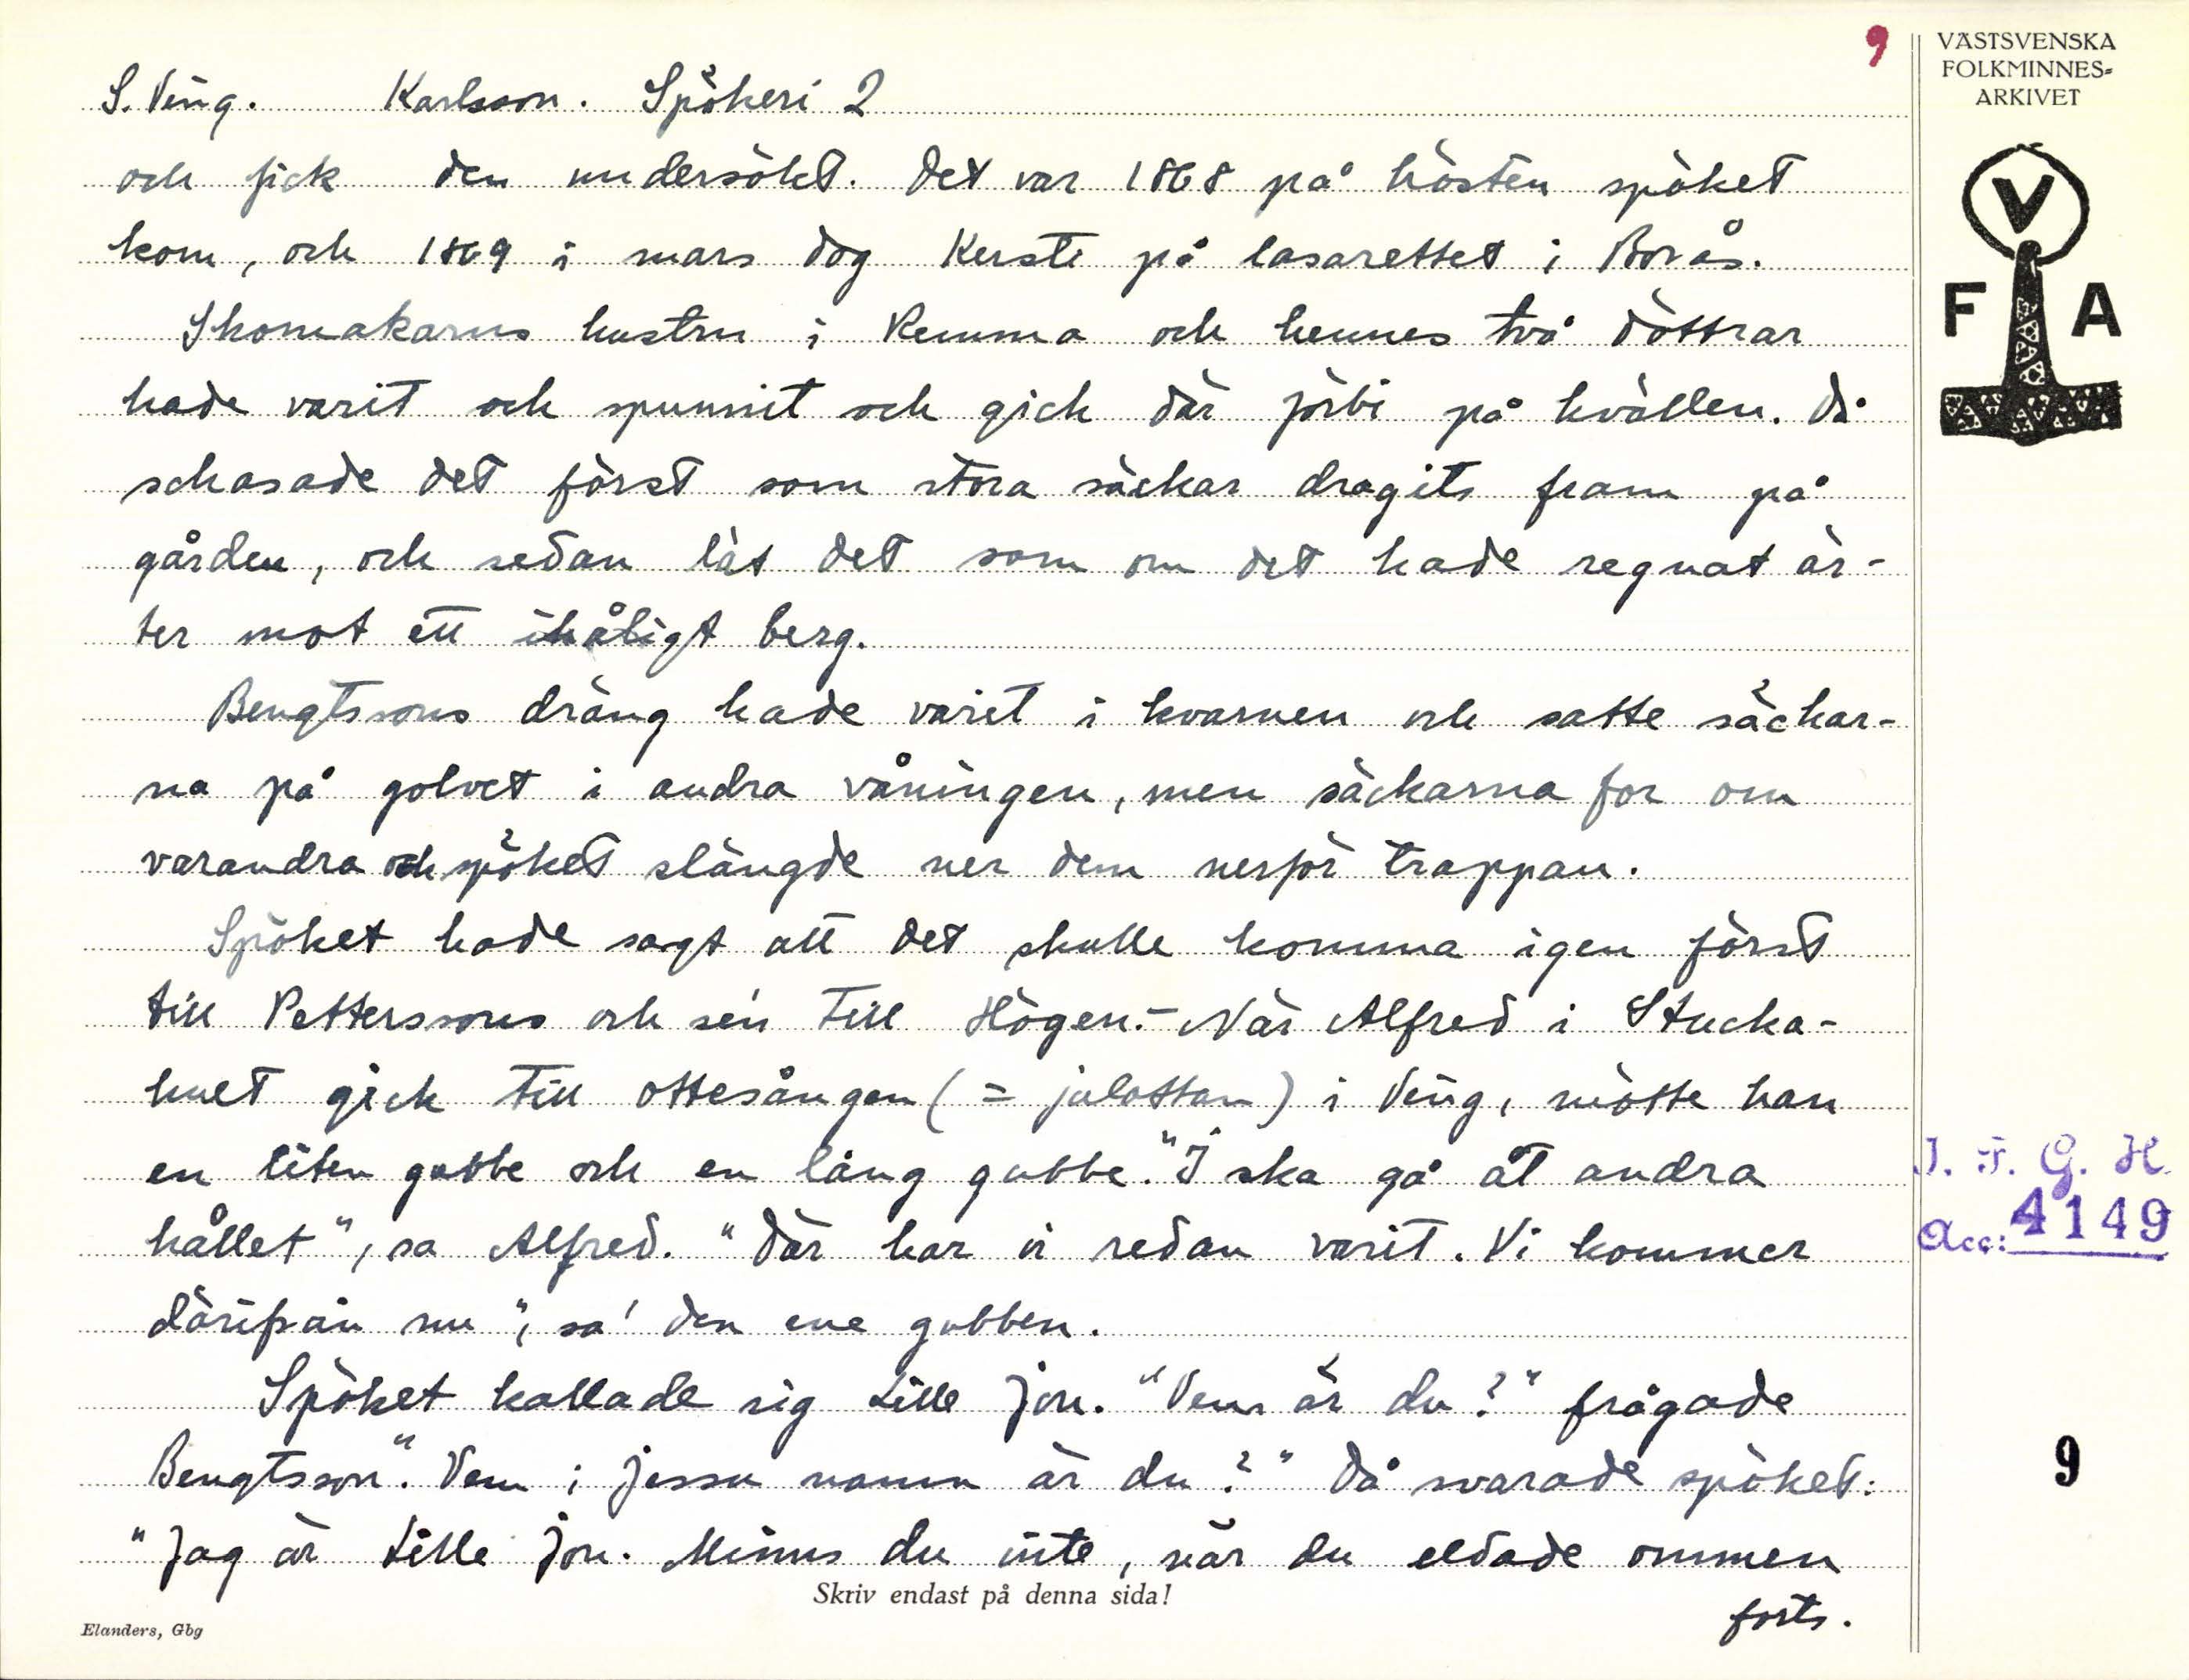 9
VÄSTSVENSKA
FOLKMINNES-
ARKIVET
V
F A
S. Ving. Karlsson. Spökeri 2
och fick den undersökt. Det var 1868 på hösten spöket
kom, och 1869 i mars dog Kersti på lasarettet i Borås.
Skomakarns hustru i Remma och hennes två döttrar
hade varit och spunnit och gick där förbi på kvällen. Då
schasade det först som stora säckar dragits fram på
gården, och sedan lät det som om det hade regnat är-
ter mot ett ihåligt berg.
Bengtssons dräng hade varit i kvarnen och satte säckar-
na på golvet i andra våningen, men säckarna for om
varandra och spöket slängde ner dem nerför trappan.
Spöket hade sagt att det skulle komma igen först
till Petterssons och sen till Högen. - När Alfred i Stucka-
huet gick till ottesången (= julottan) i Ving, mötte han
en liten gubbe och en lång gubbe. "I ska gå åt andra
hållet", sa Alfred. "Där har vi redan varit. Vi kommer
därifrån nu", sa' den ene gubben.
Spöket kallade sig Lille Jon. "Vem är du?" frågade
Bengtsson. "Vem i Jessu namn är du?" Då svarade spöket:
"Jag är Lille Jon. Minns du inte, när du eldade ommen
forts.
Skriv endast på denna sida!
Elanders, Gbg
I. F. G. H.
Acc: 4149
9